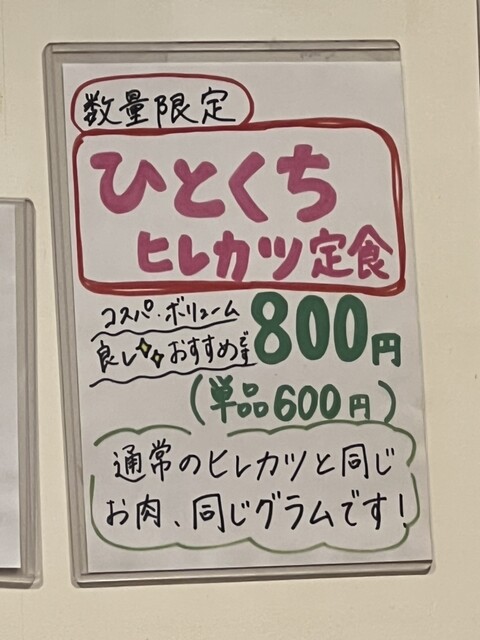 数量限定
ひとくち
ヒレカツ定食
コスパ・ボリューム
良し おすすめです
800円
(単品600円)
通常のヒレカツと同じ
お肉、同じグラムです!